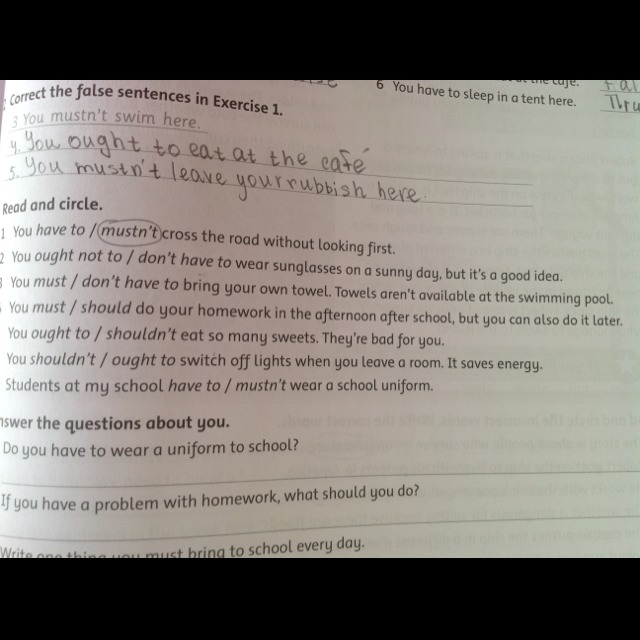 6 You have to sleep in a tent here.
Correct the false sentences in Exercise 1.
3 You mustn't swim here.
4. You ought to eat at the café
5. You mustn't leave your rubbish here.
Read and circle.
1 You have to / mustn't cross the road without looking first.
2 You ought not to / don't have to wear sunglasses on a sunny day, but it's a good idea.
You must / don't have to bring your own towel. Towels aren't available at the swimming pool.
You must / should do your homework in the afternoon after school, but you can also do it later.
You ought to / shouldn't eat so many sweets. They're bad for you.
You shouldn't / ought to switch off lights when you leave a room. It saves energy.
Students at my school have to / mustn't wear a school uniform.
nswer the questions about you.
Do you have to wear a uniform to school?
If you have a problem with homework, what should you do?
Write one thing you must bring to school every day.